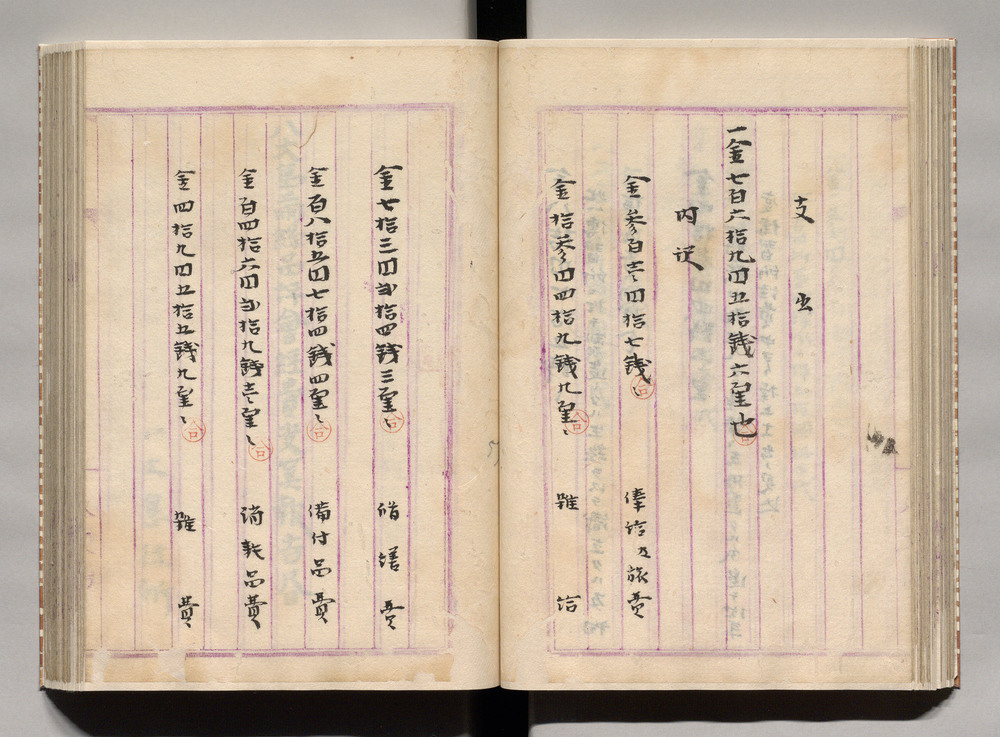 支出
一金七百六拾九円五拾銭六厘也
内訳
金参百壱円拾七銭、 俸給及旅費
金拾参円四拾九銭九厘、 雑給
金七拾三円弐拾四銭三厘、 修繕費
金百八拾五円七拾四銭四厘、 備付品費
金百四拾六円弐拾九銭壱厘、 消耗品費
金四拾九円五拾五銭九厘、 雑費